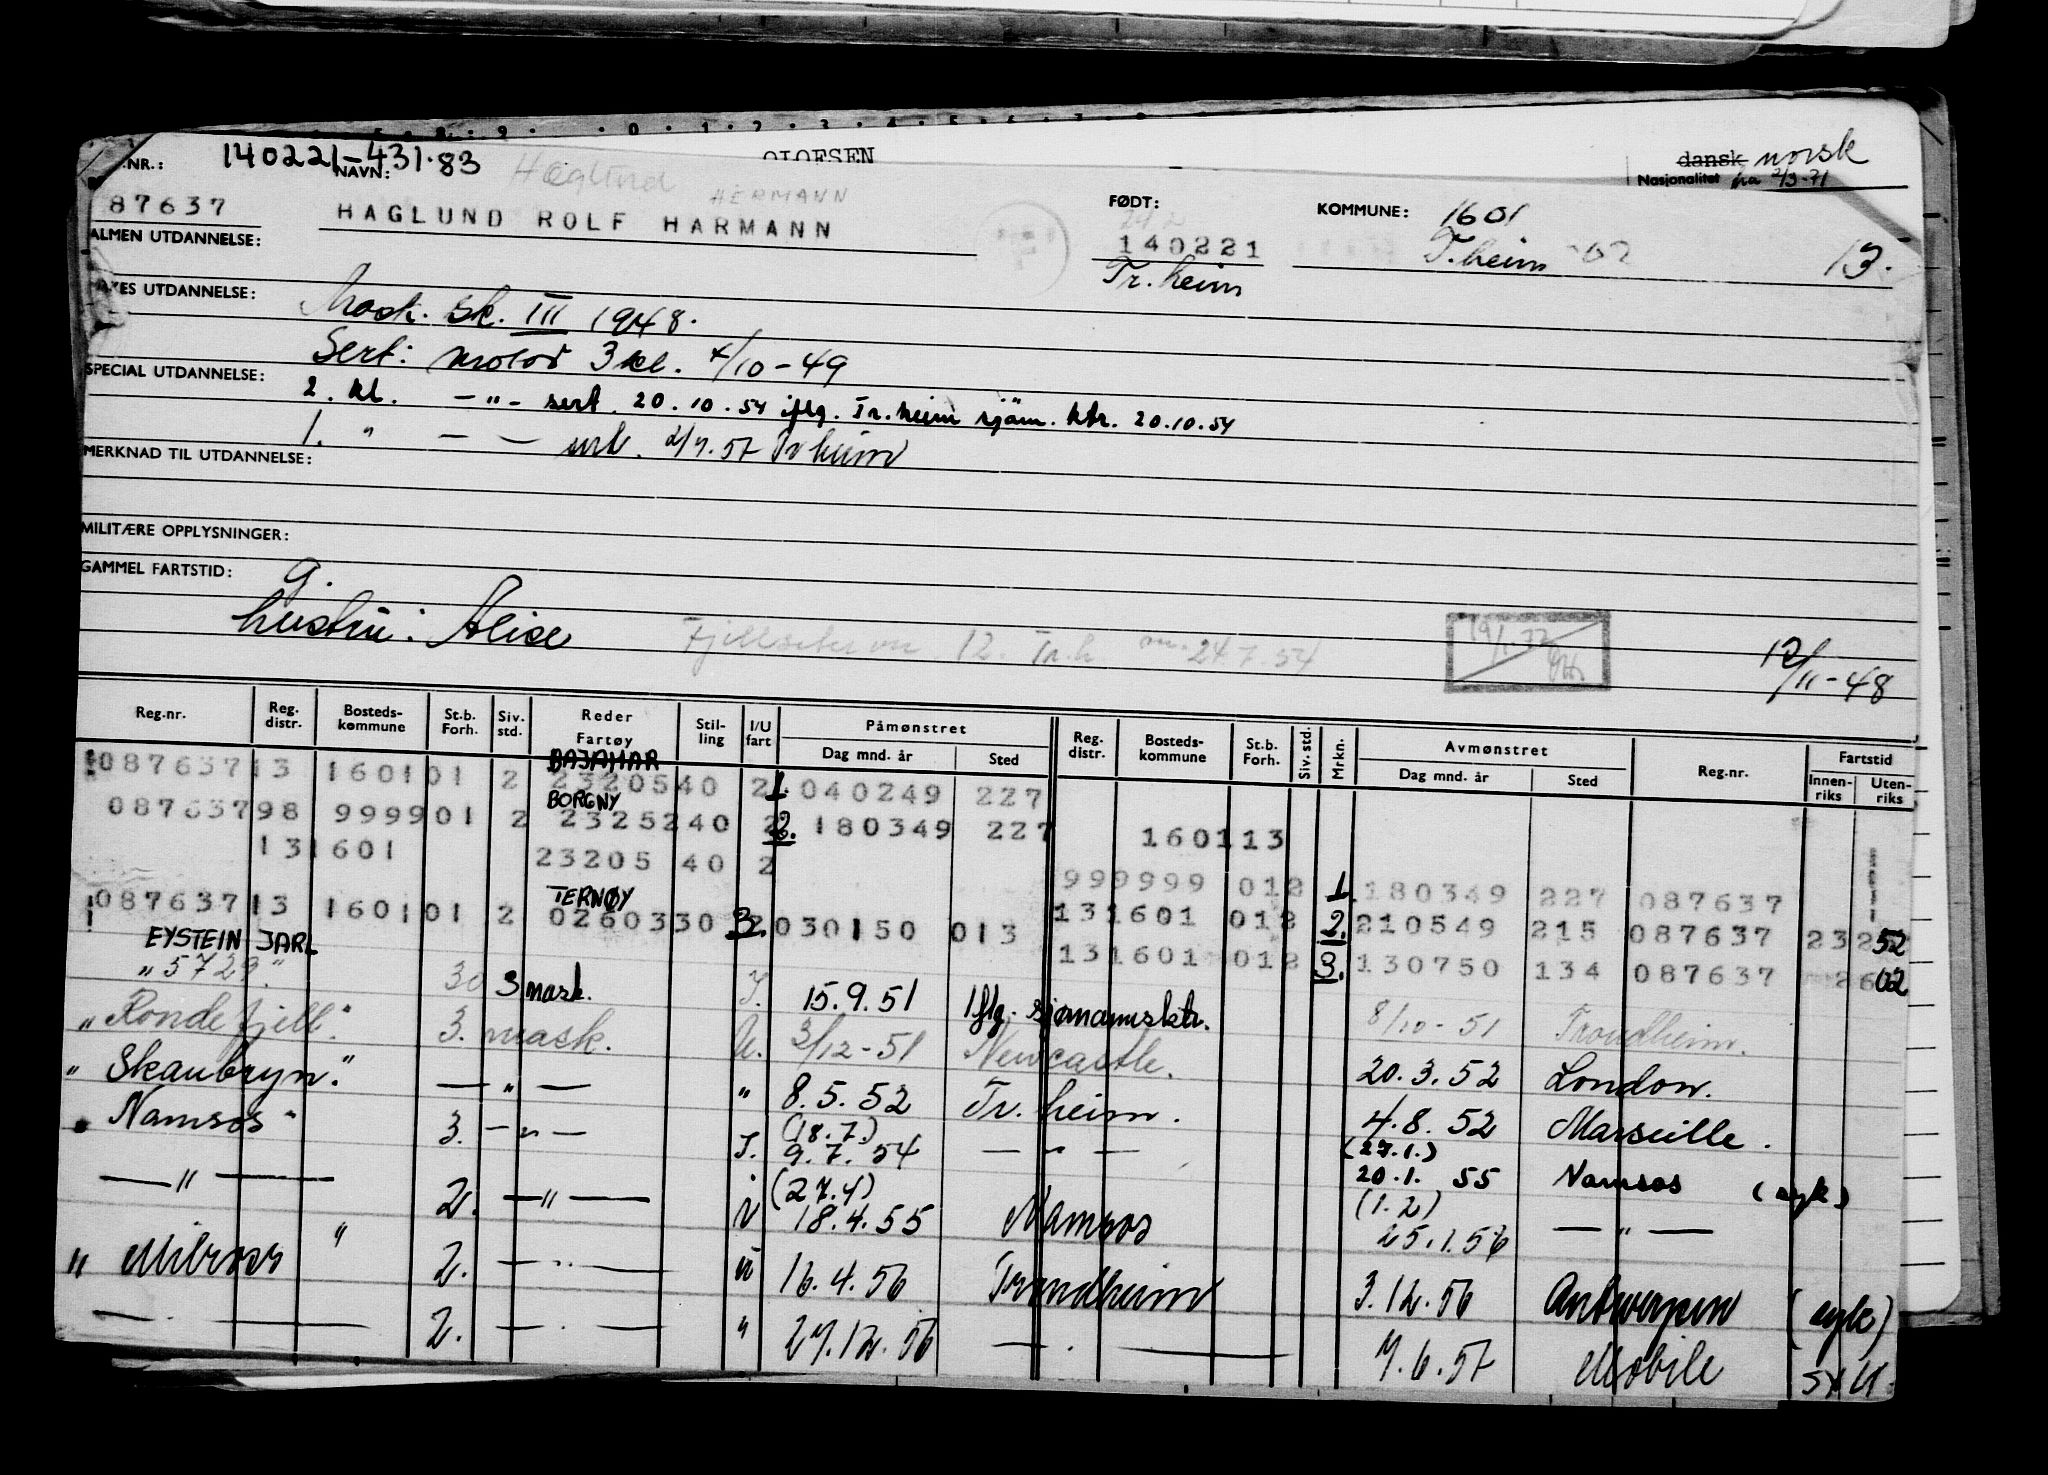 OLOFSEN
.NR.: 140221-431.83
NAVN: Haglund HERMANN
dansk norsk
Nasjonalitet fra 2/3-71
87637 HAGLUND ROLF HARMANN
FØDT: 140221
Tr.heim
KOMMUNE: 1601
T.heim
13.
ALMEN UTDANNELSE:
UTDANNELSE: Mask. sk. III 1948.
Sert: motor 3 kl. 4/10-49
SPECIAL UTDANNELSE: 2. kl. -"- sert. 20.10.54 iflg. Tr.heim sjöm. ktr. 20.10.54
1. " — — 2/7.57 Tr heim
MERKNAD TIL UTDANNELSE:
MILITÆRE OPPLYSNINGER:
GAMMEL FARTSTID: g.
hustru: Alise Fjellseter 12. Tr.h 24.7.54
19/1.72
12/11-48
Reg.nr. Reg. distr. Bosteds- kommune St.b. Forh. Siv. std. Reder Fartøy Stil- ling I/U fart Påmønstret Dag mnd. år Sted Reg. distr. Bosteds- kommune St.b. Forh. Siv. std. Mrkn. Avmønstret Dag mnd. år Sted Reg.nr. Fartstid Innen- riks Uten- riks
BAJAMAR
087637 13 1601 01 2 23205 40 2 1. 040249 227
BORGNY
087637 98 9999 01 2 23252 40 2 2. 180349 227 1601 13
13 1601 23205 40 2
999999 012 1. 180349 227 087637
TERNØY
087637 13 1601 01 2 02603 30 2 3. 030150 013 131601 012 2. 210549 215 087637 23 52
EYSTEIN JARL
131601 012 3. 130750 134 087637 26 02
"5729" 30 3 mask. I. 15.9.51 Iflg. sjømannsktr. 8/10-51 Trondheim.
"Rondefjell" 3. mask. U. 3/12-51 Newcastle. 20.3.52 London.
"Skaubryn" — " — " 8.5.52 Tr. heim. 4.8.52 Marseille.
"Namsos" 3. — " — I. (18.7.) 9.7.54 — " — (27.1.) 20.1.55 Namsos (syk)
— " — 2. — " — i (27.4) 18.4.55 Namsos (1.2) 25.1.56 — " —
" Milross " 2. — " — u 16.4.56 Trondheim 3.12.56 Antwerpen (syk)
— " — 2. — " — " 27.12.56 — " — 7.6.57 Mobile